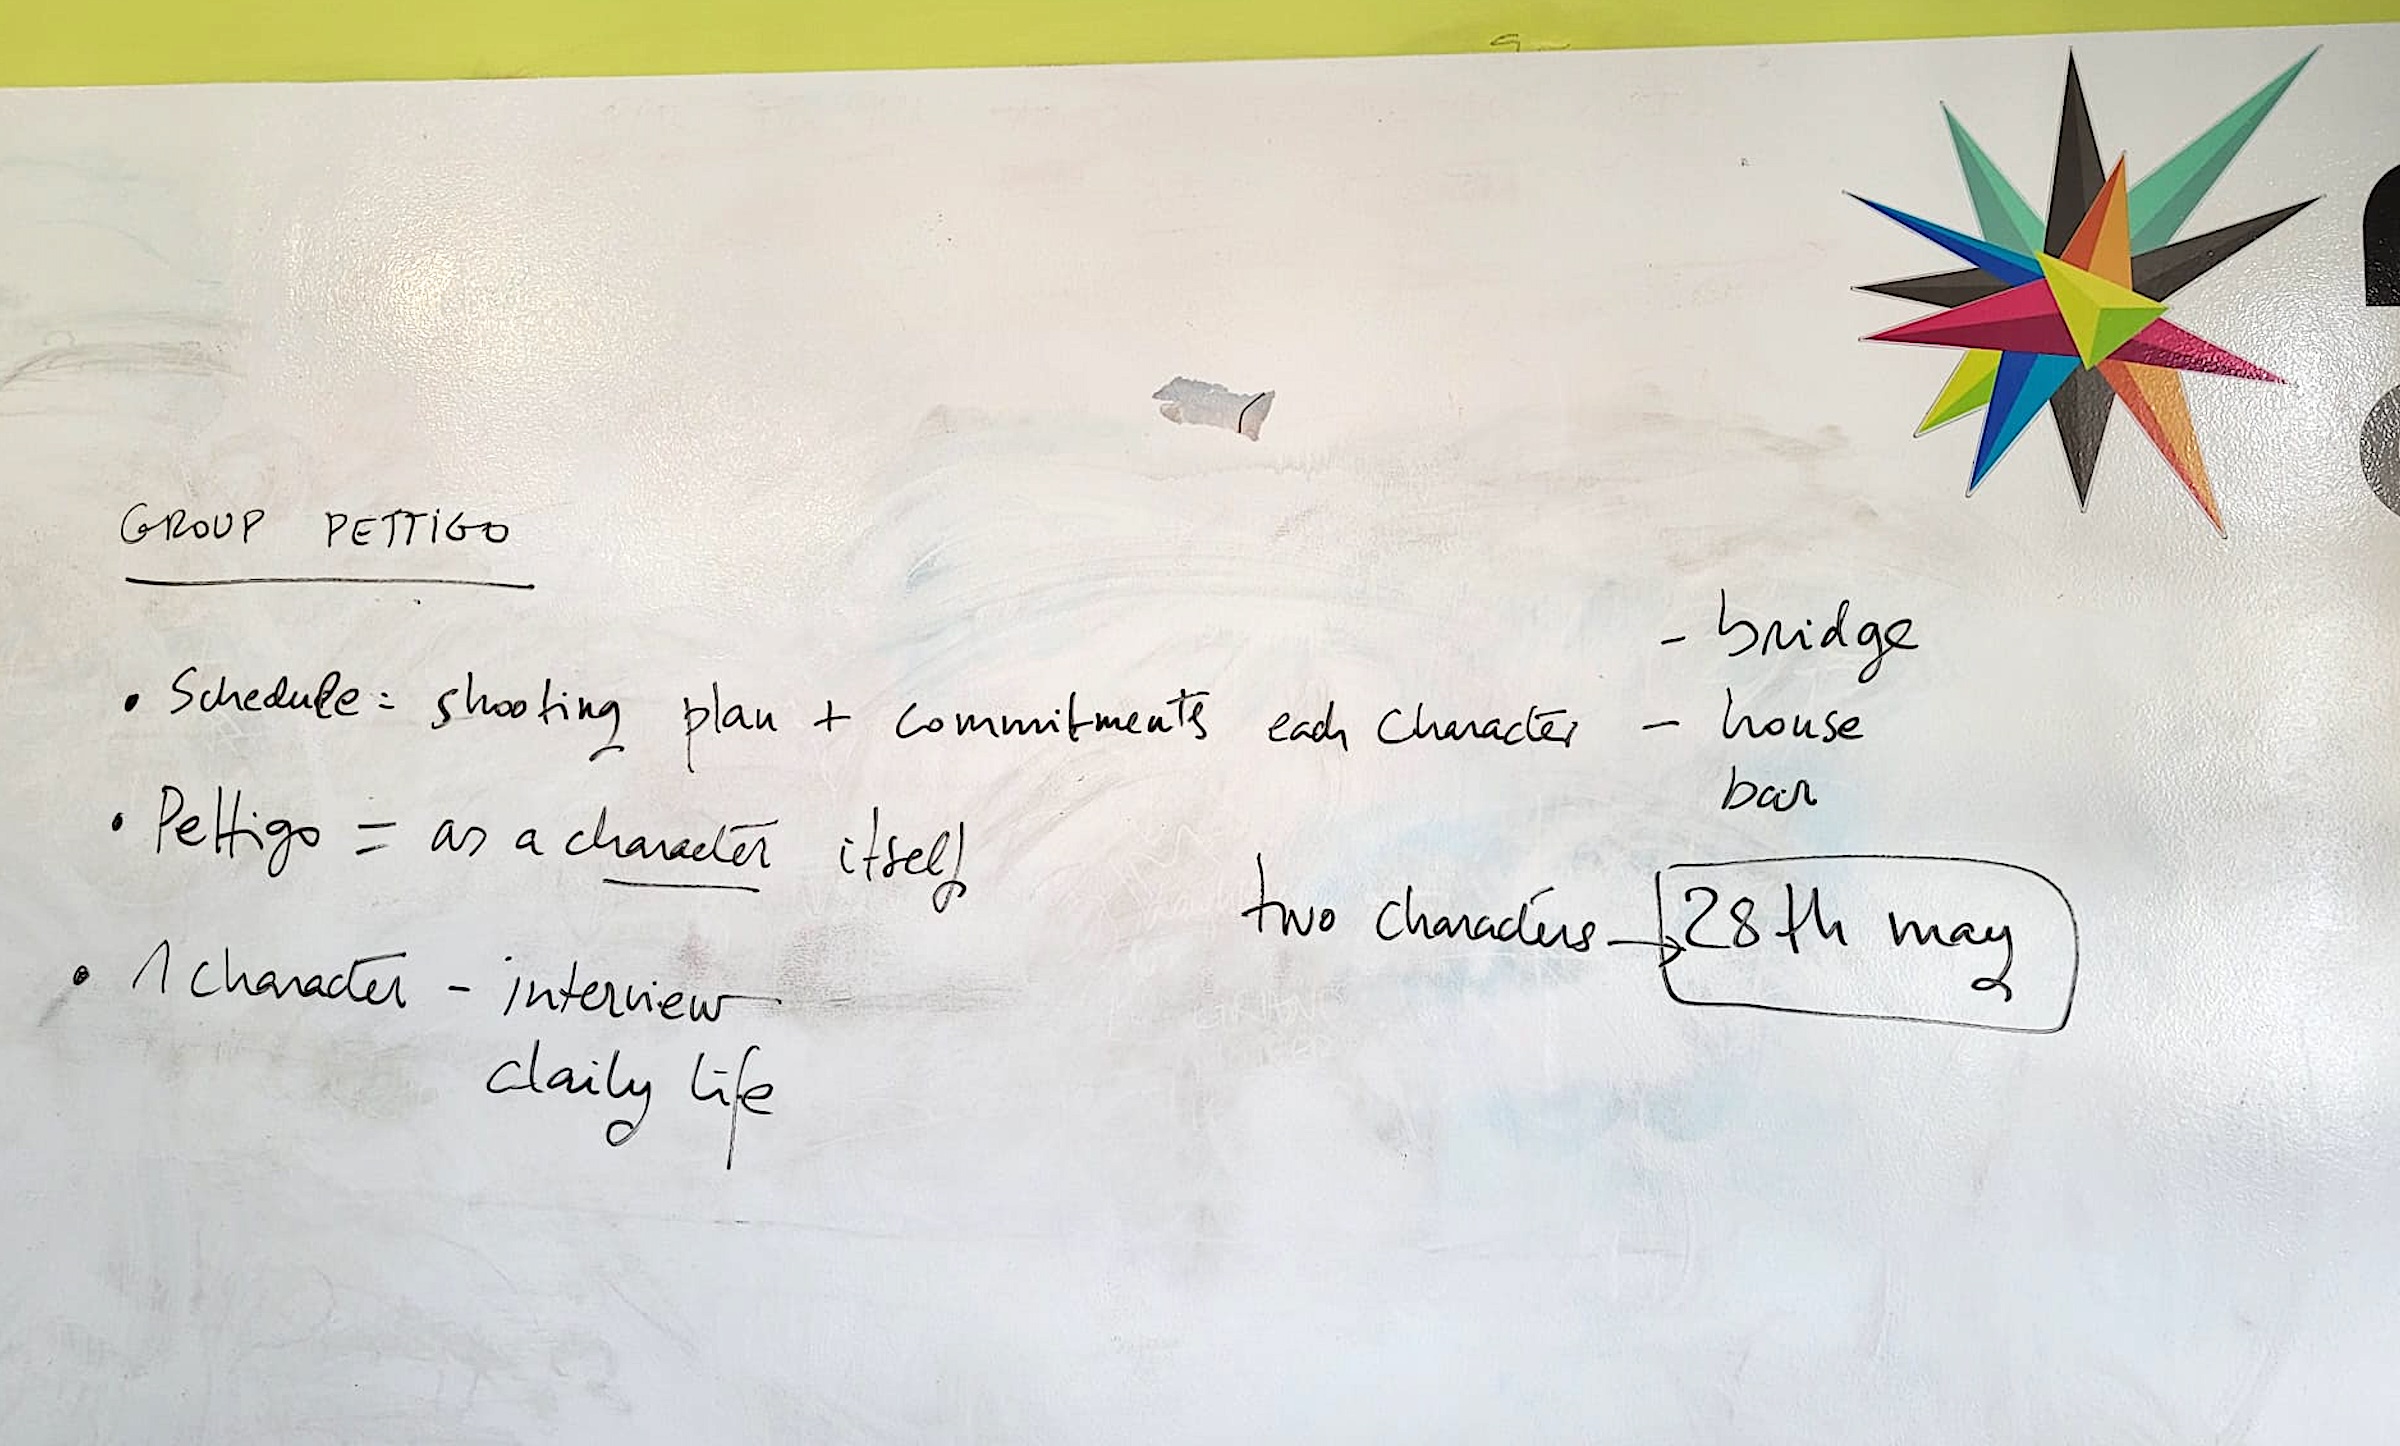 GROUP PETTIGO
- bridge
• Schedule = shooting plan + commitments each character - house
bar
• Pettigo = as a character itself
two characters → 28th may
• 1 character - interview
daily life